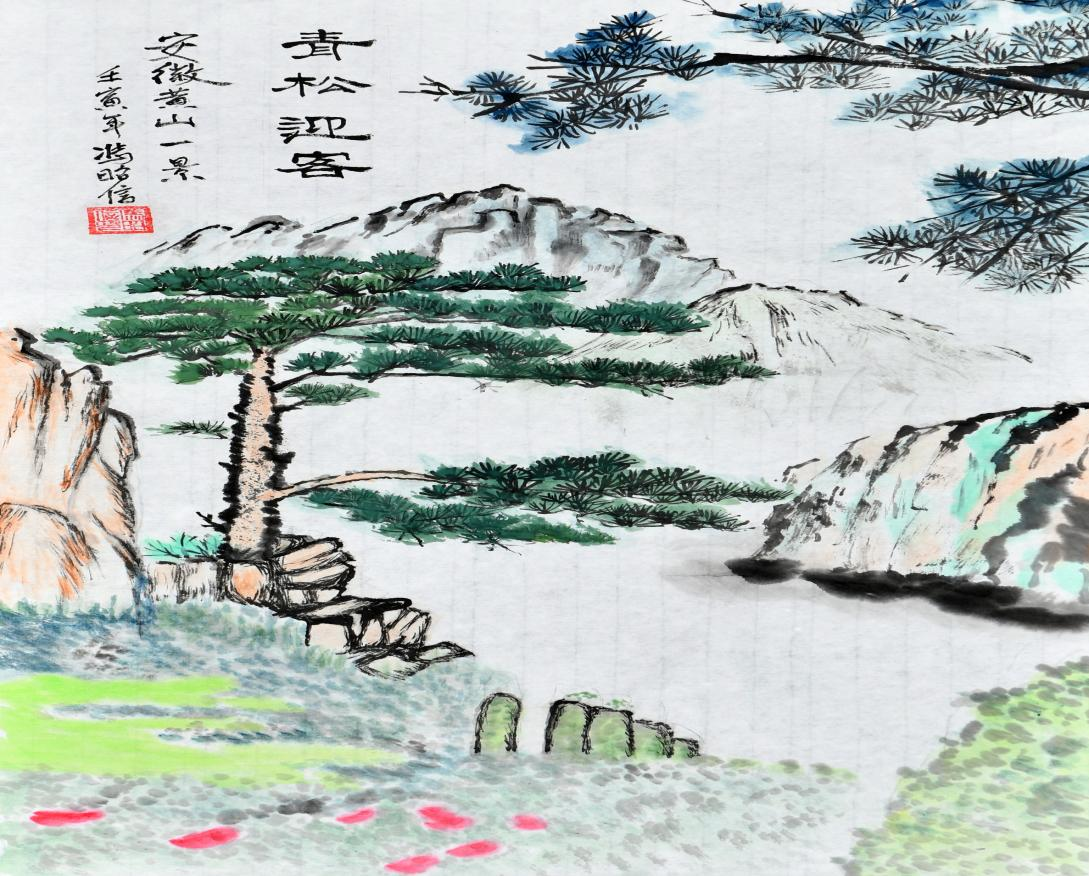 青松迎客
安徽黄山一景
壬寅年冯昭信